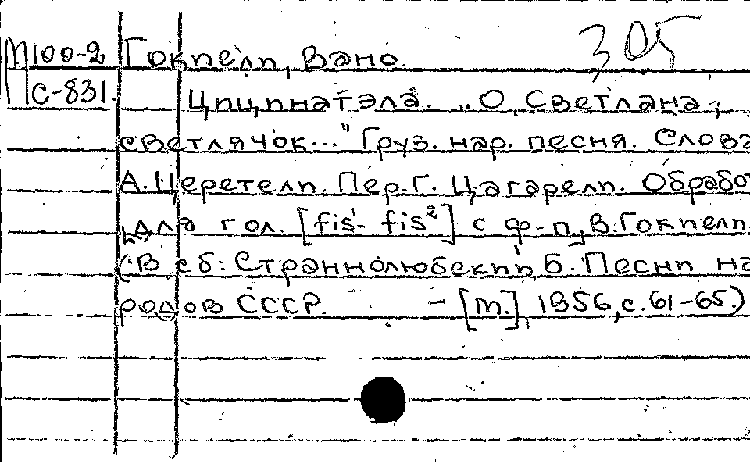 М100-2 Гокиели, Вано. 305
С-831. Цицинатэла. „О, Светлана,
светлячок..." Груз. нар. песня. Слова
А. Церетели. Пер. Г. Цагарели. Обрабо
для гол. [fis¹- fis²] с ф-п. В. Гокиели.
(В сб: Страннолюбский, Б. Песни на
родов СССР. - [М.], 1956, с. 61-65.)